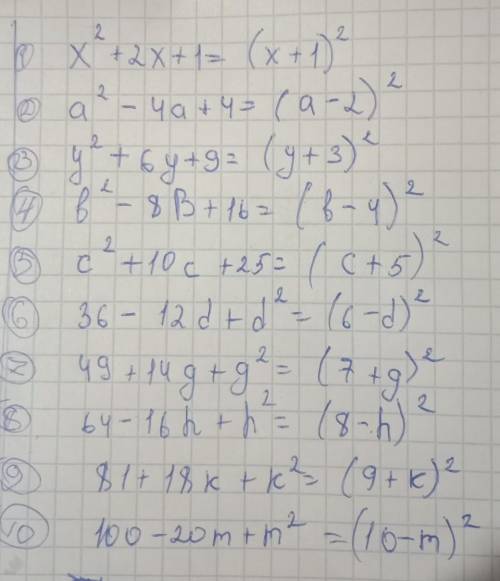 ① x² + 2x + 1 = (x + 1)²
② a² - 4a + 4 = (a - 2)²
③ y² + 6y + 9 = (y + 3)²
④ в² - 8В + 16 = (в - 4)²
⑤ c² + 10c + 25 = (c + 5)²
⑥ 36 - 12d + d² = (6 - d)²
⑦ 49 + 14g + g² = (7 + g)²
8 64 - 16h + h² = (8 - h)²
⑨ 81 + 18к + к² = (9 + к)²
⑩ 100 - 20m + m² = (10 - m)²